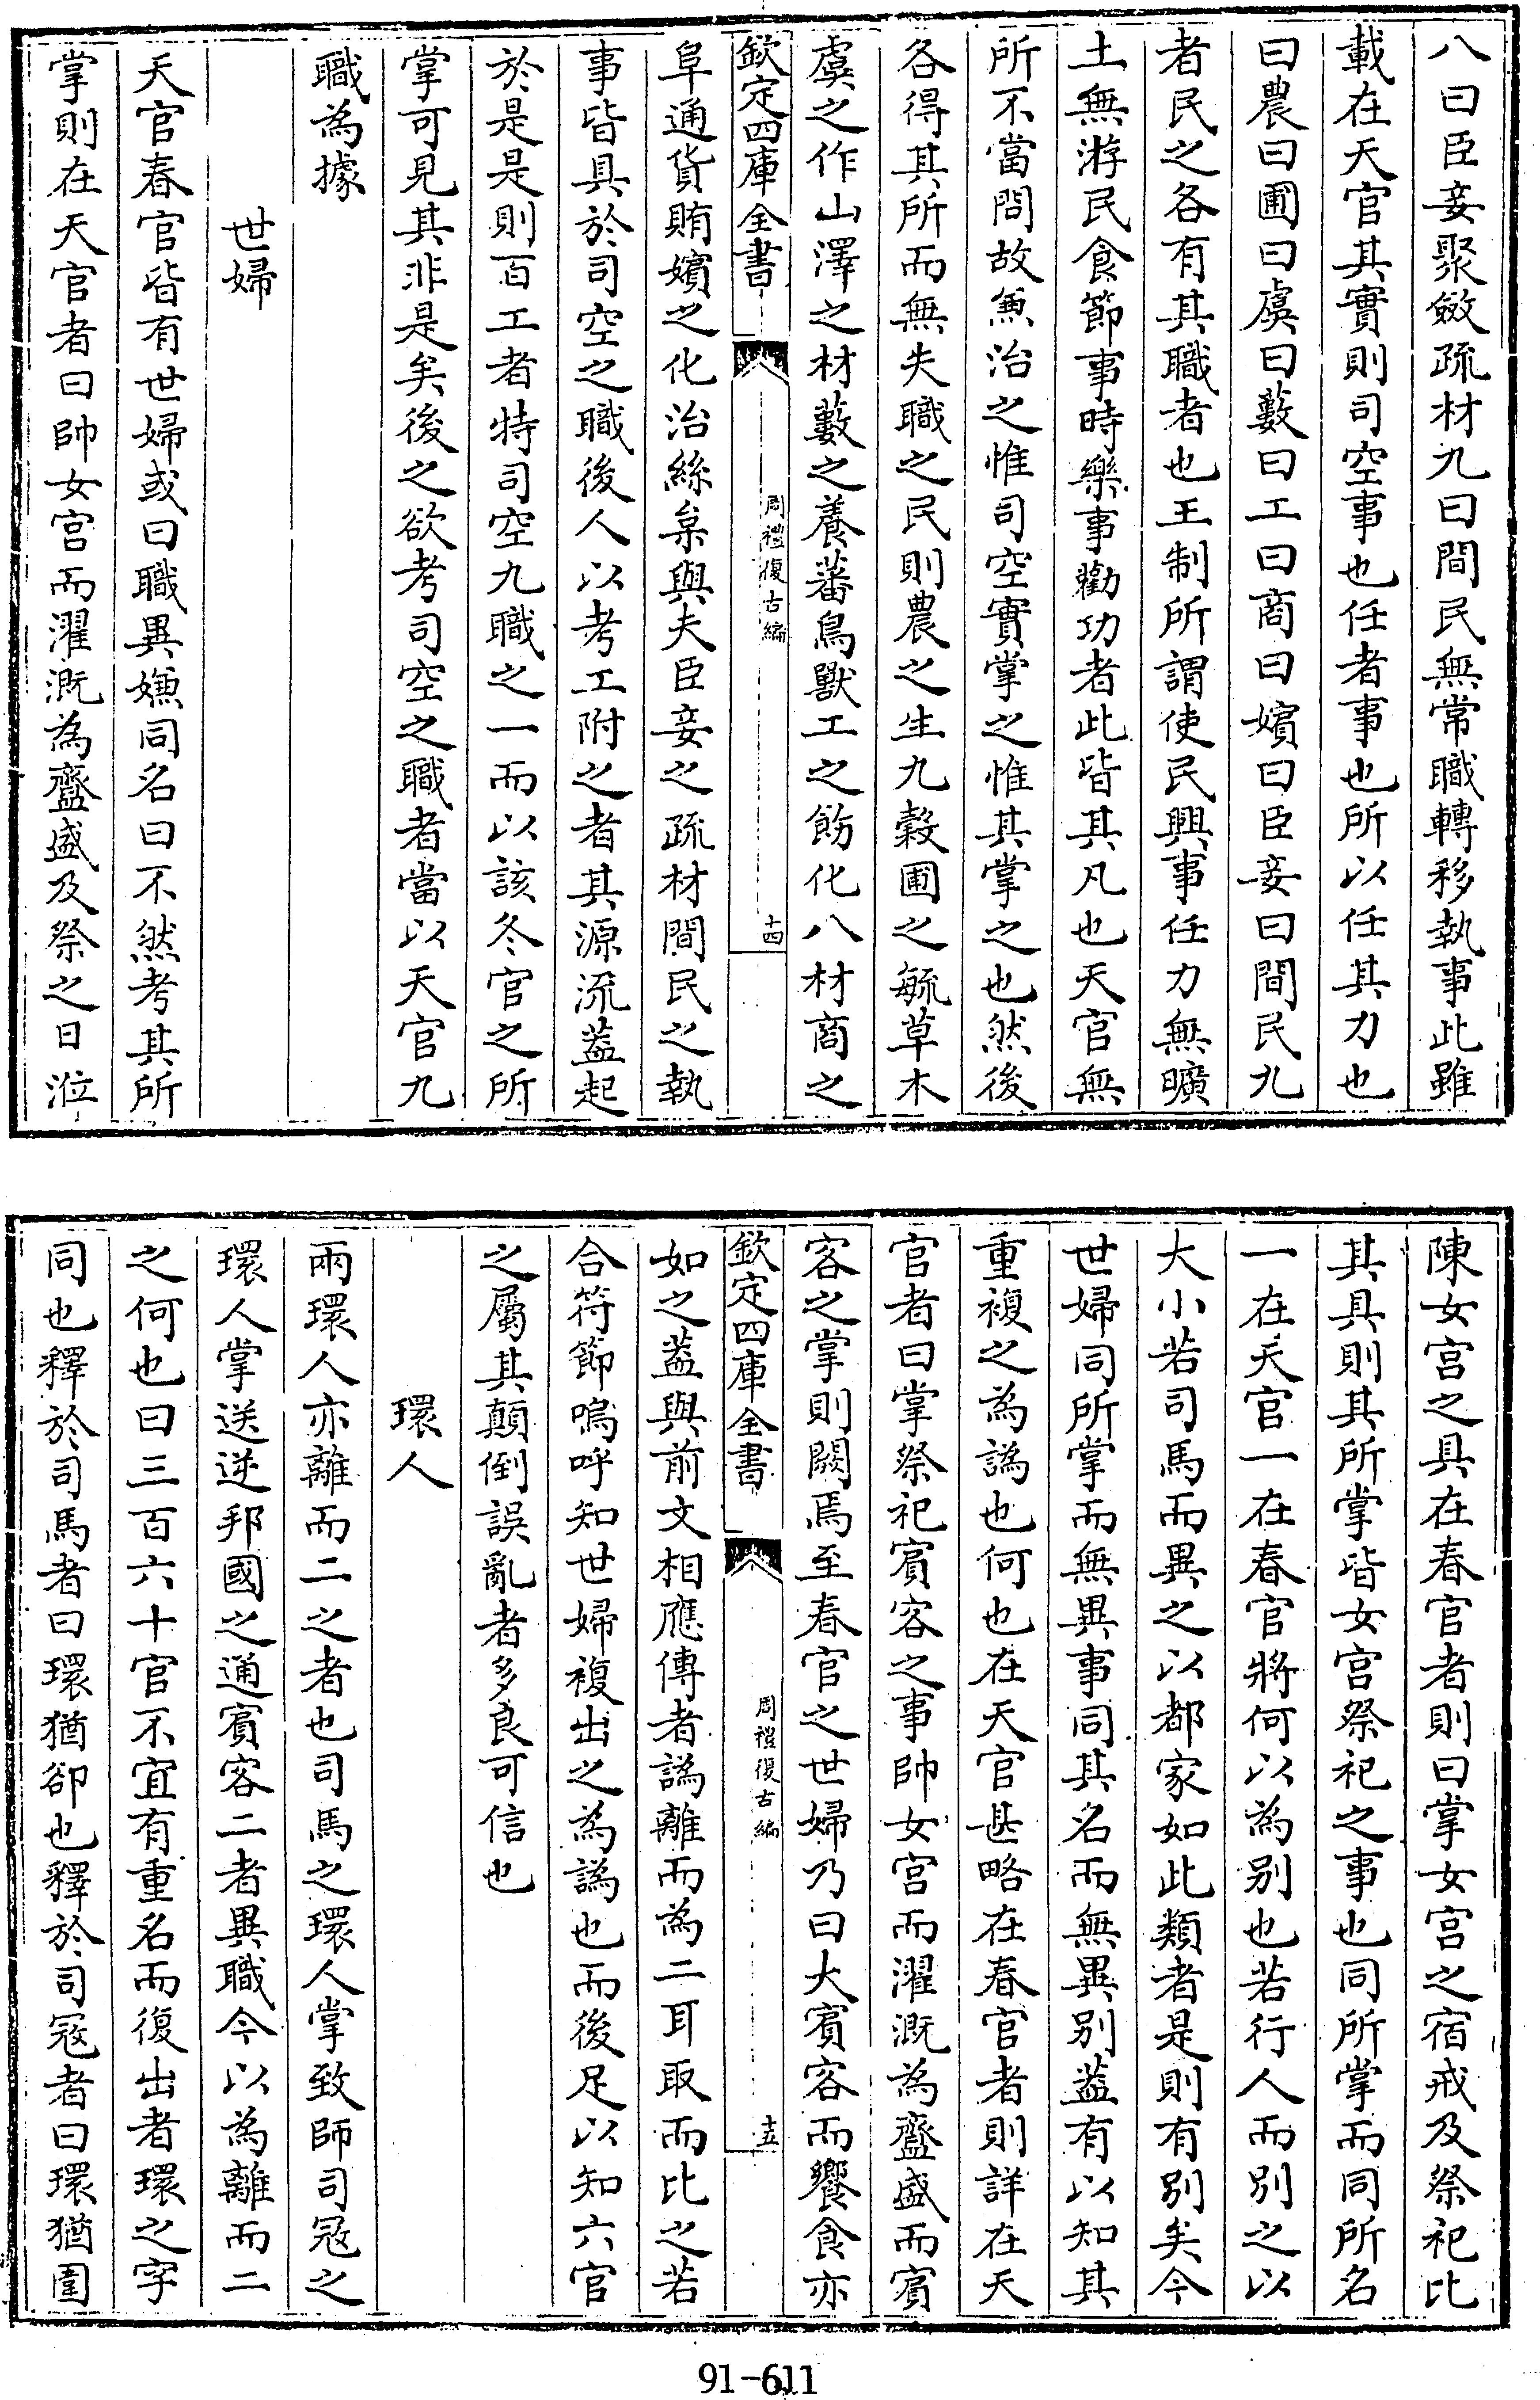 八曰臣妾聚斂疏材九曰間民無常職轉移執事此雖
載在天官其實則司空事也任者事也所以任其力也
曰農曰圃曰虞曰藪曰工曰商曰嬪曰臣妾曰間民九
者民之各有其職者也王制所謂使民興事任力無曠
土無游民食節事時樂事勸功者此皆其凡也天官無
所不當問故兼治之惟司空實掌之惟其掌之也然後
各得其所而無失職之民則農之生九穀圃之毓草木
虞之作山澤之材藪之養蕃鳥獸工之飭化八材商之
欽定四庫全書
周禮復古編
十四
阜通貨賄嬪之化治絲枲與夫臣妾之疏材間民之執
事皆具於司空之職後人以考工附之者其源流蓋起
於是是則百工者特司空九職之一而以該冬官之所
掌可見其非是矣後之欲考司空之職者當以天官九
職為據
世婦
天官春官皆有世婦或曰職異嫌同名曰不然考其所
掌則在天官者曰帥女宮而濯溉為齍盛及祭之日涖
陳女宮之具在春官者則曰掌女宮之宿戒及祭祀比
其具則其所掌皆女宮祭祀之事也同所掌而同所名
一在天官一在春官將何以為別也若行人而別之以
大小若司馬而異之以都家如此類者是則有別矣今
世婦同所掌而無異事同其名而無異別蓋有以知其
重複之為譌也何也在天官甚略在春官者則詳在天
官者曰掌祭祀賓客之事帥女宮而濯溉為齍盛而賓
客之掌則闕焉至春官之世婦乃曰大賓客而饗食亦
欽定四庫全書
周禮復古編
十五
如之蓋與前文相應傳者譌離而為二耳取而比之若
合符節嗚呼知世婦複出之為譌也而後足以知六官
之屬其顛倒誤亂者多良可信也
環人
兩環人亦離而二之者也司馬之環人掌致師司寇之
環人掌送逆邦國之通賓客二者異職今以為離而二
之何也曰三百六十官不宜有重名而復出者環之字
同也釋於司馬者曰環猶卻也釋於司寇者曰環猶圍
91-611